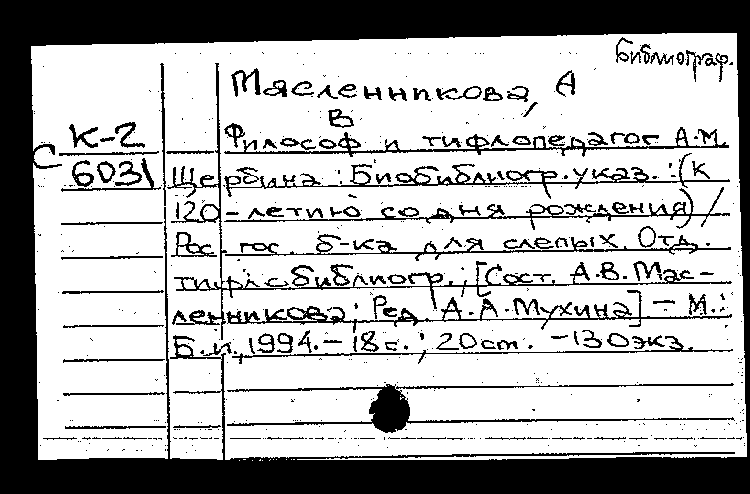 Библиограф.
Масленникова, А
В
К-2 Философ и тифлопедагог А.М.
С 6031 Щербина : Биобиблиогр. указ. : (к
120-летию со дня рождения) /
Рос. гос. б-ка для слепых. Отд.
тифлобиблиогр.; [Сост. А.В. Мас-
ленникова; Ред. А.А. Мухина] - М.:
Б.и., 1994. - 18 с.; 20 см. - 130 экз.